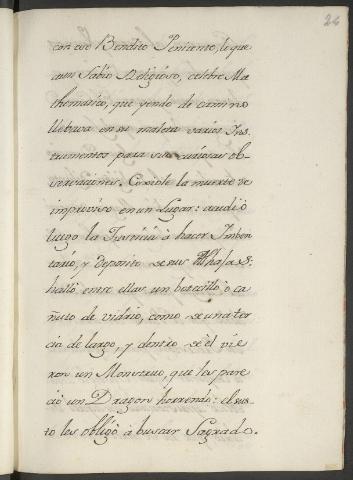 26
con ese Bendito Peniente, lo que
a un Sabio Religioso, celebre Ma
thematico, que yendo de camino
llebava en su maleta varios Ins
trumentos para sus curiosas ob
servaciones. Cogiole la muerte de
improviso en un Lugar: acudió
luego la Justicia à hacer Imben
tario, y deposito de sus Alhajas:
halló entre ellas un botecillo ò ca
ñuto de vidrio, como de una ter
cia de largo, y dentro de èl vie
ron un Monstruo, que les pare
ció un Dragon horrendo: el sus
to les obligó à buscar Sagrado.